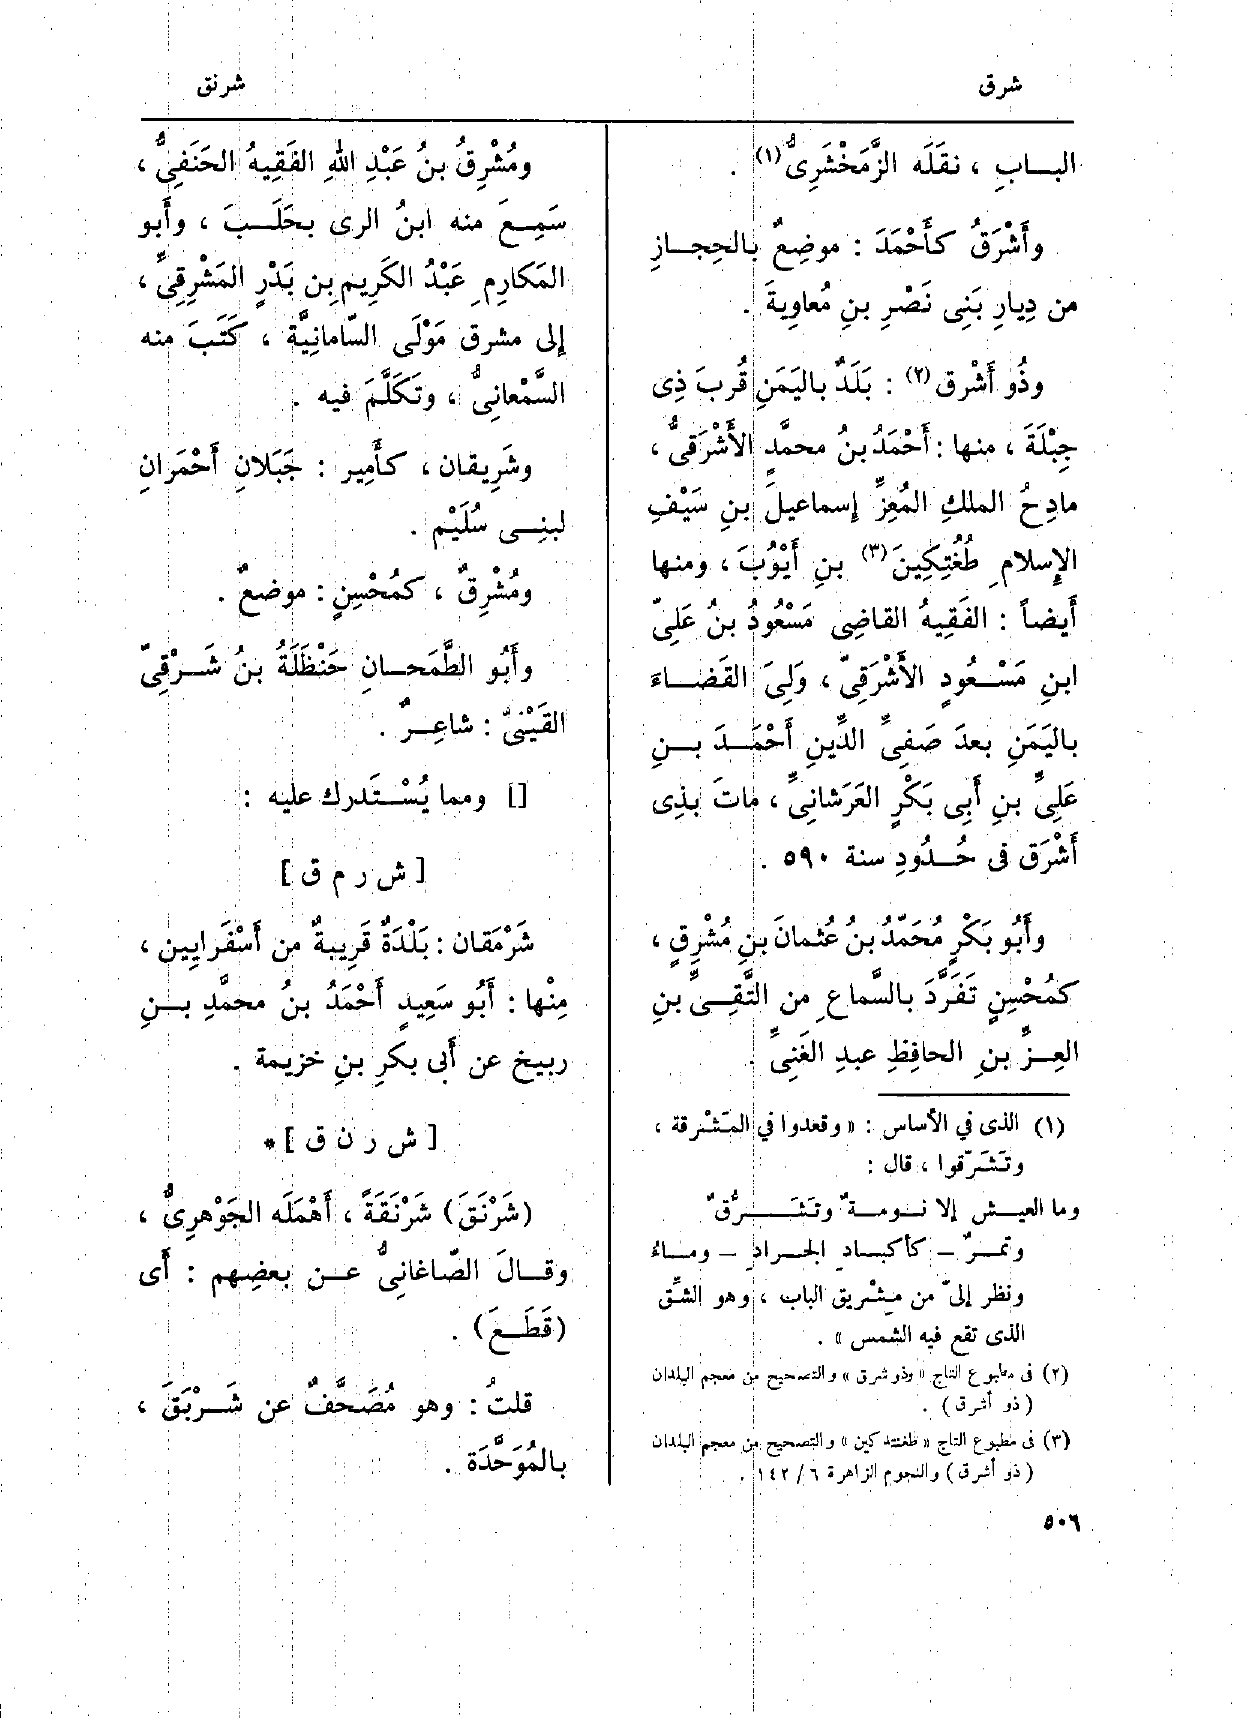 شرق
شرنق
البـاب ، نقَلَه الزَّمَخْشَرِىُّ(١) .
وأَشْرَقُ كأَحْمَدَ : موضِعٌ بالحِجـازِ
من دِيارِ بَنِى نَصْرِ بنِ مُعاوِيةَ .
وذُو أَشْرق(٢) : بَلَدٌ باليَمَنِ قُربَ ذِى
جِبْلَةَ ، منها : أَحْمَدُ بنُ محمَّدٍ الأَشْرَقىُّ ،
مادِحُ الملكِ المُعِزِّ إسماعيلَ بنِ سَيْفِ
الإِسلامِ طُغُتِكِينَ(٣) بنِ أَيُّوبَ ، ومنها
أَيضاً : الفَقِيهُ القاضِى مَسْعُودُ بنُ عَلِىِّ
ابنِ مَسْـعُودٍ الأَشْرَقِىّ ، وَلِىَ القَضـاءَ
باليَمَنِ بعدَ صَفِىِّ الدِّينِ أَحْمَـدَ بـنِ
عَلِىِّ بنِ أَبِى بَكْرٍ العَرَشانِىِّ ، ماتَ بذِى
أَشْرَق فى حُـدُودِ سنة ٥٩٠ .
وأَبُو بَكْرٍ مُحَمَّدُ بنُ عُثمانَ بنِ مُشْرِقٍ ،
كمُحْسِنٍ تَفَرَّدَ بالسَّماعِ من التَّقِىِّ بنِ
العِـزِّ بنِ الحافِظِ عبدِ الغَنِىِّ .
(١) الذى فى الأساس : « وقعدوا فى المَشْرقة ،
وتَشَرّقوا ، قال :
وما العيـش إلا نـومـة وتَشَـرُّقٌ
وتمـرٌ – كأكبـادِ الجرادِ – ومـاءُ
ونظر إلىّ من مِشْريق الباب ، وهو الشقّ
الذى تقع فيه الشمس » .
(٢) فى مطبوع التاج « وذو شرق » والتصحيح من معجم البلدان
( ذو أشرق ) .
(٣) فى مطبوع التاج « طغتد كين » والتصحيح من معجم البلدان
( ذو أشرق ) والنجوم الزاهرة ٦ / ١٤٢ .
ومُشْرِقُ بنُ عَبْدِ اللهِ الفَقِيهُ الحَنَفِىُّ ،
سَمِـعَ منه ابنُ الرى بحَلَـبَ ، وأَبو
المَكارِمِ عَبْدُ الكَرِيمِ بن بَدْرٍ المَشْرِقِىِّ ،
إلى مشرق مَوْلَى السَّامانِيَّة ، كَتَبَ منه
السَّمْعانِىُّ ، وتَكَلَّمَ فيه .
وشَرِيقان ، كأَمِير : جَبَلانِ أَحْمَرانِ
لبنِـى سُلَيْم .
ومُشْرِقٌ ، كمُحْسِنٍ : موضعٌ .
وأَبُو الطَّمَحـانِ حَنْظَلَةُ بنُ شَـرْقِىّ
القَيْنِىُّ : شاعِـرٌ .
[] ومما يُسْـتَدرك عليه :
[ ش ر م ق ]
شَرْمَقان : بَلْدَةٌ قَرِيبةٌ من أَسْفَرايِين ،
مِنْها : أَبُو سَعِيدٍ أَحْمَدُ بنُ محمَّدِ بـنِ
ربيخ عن أَبى بكرِ بنِ خزيمة .
[ ش ر ن ق ] *
(شَرْنَقَ) شَرْنَقَةً ، أَهْمَلَه الجَوْهرِىُّ ،
وقـالَ الصّاغانِىُّ عـن بعضِهم : أَى
(قَطَـعَ) .
قلتُ : وهو مُصَحَّفٌ عن شَـرْبَقَ ،
بالمُوَحَّدَة .
٥٠٦